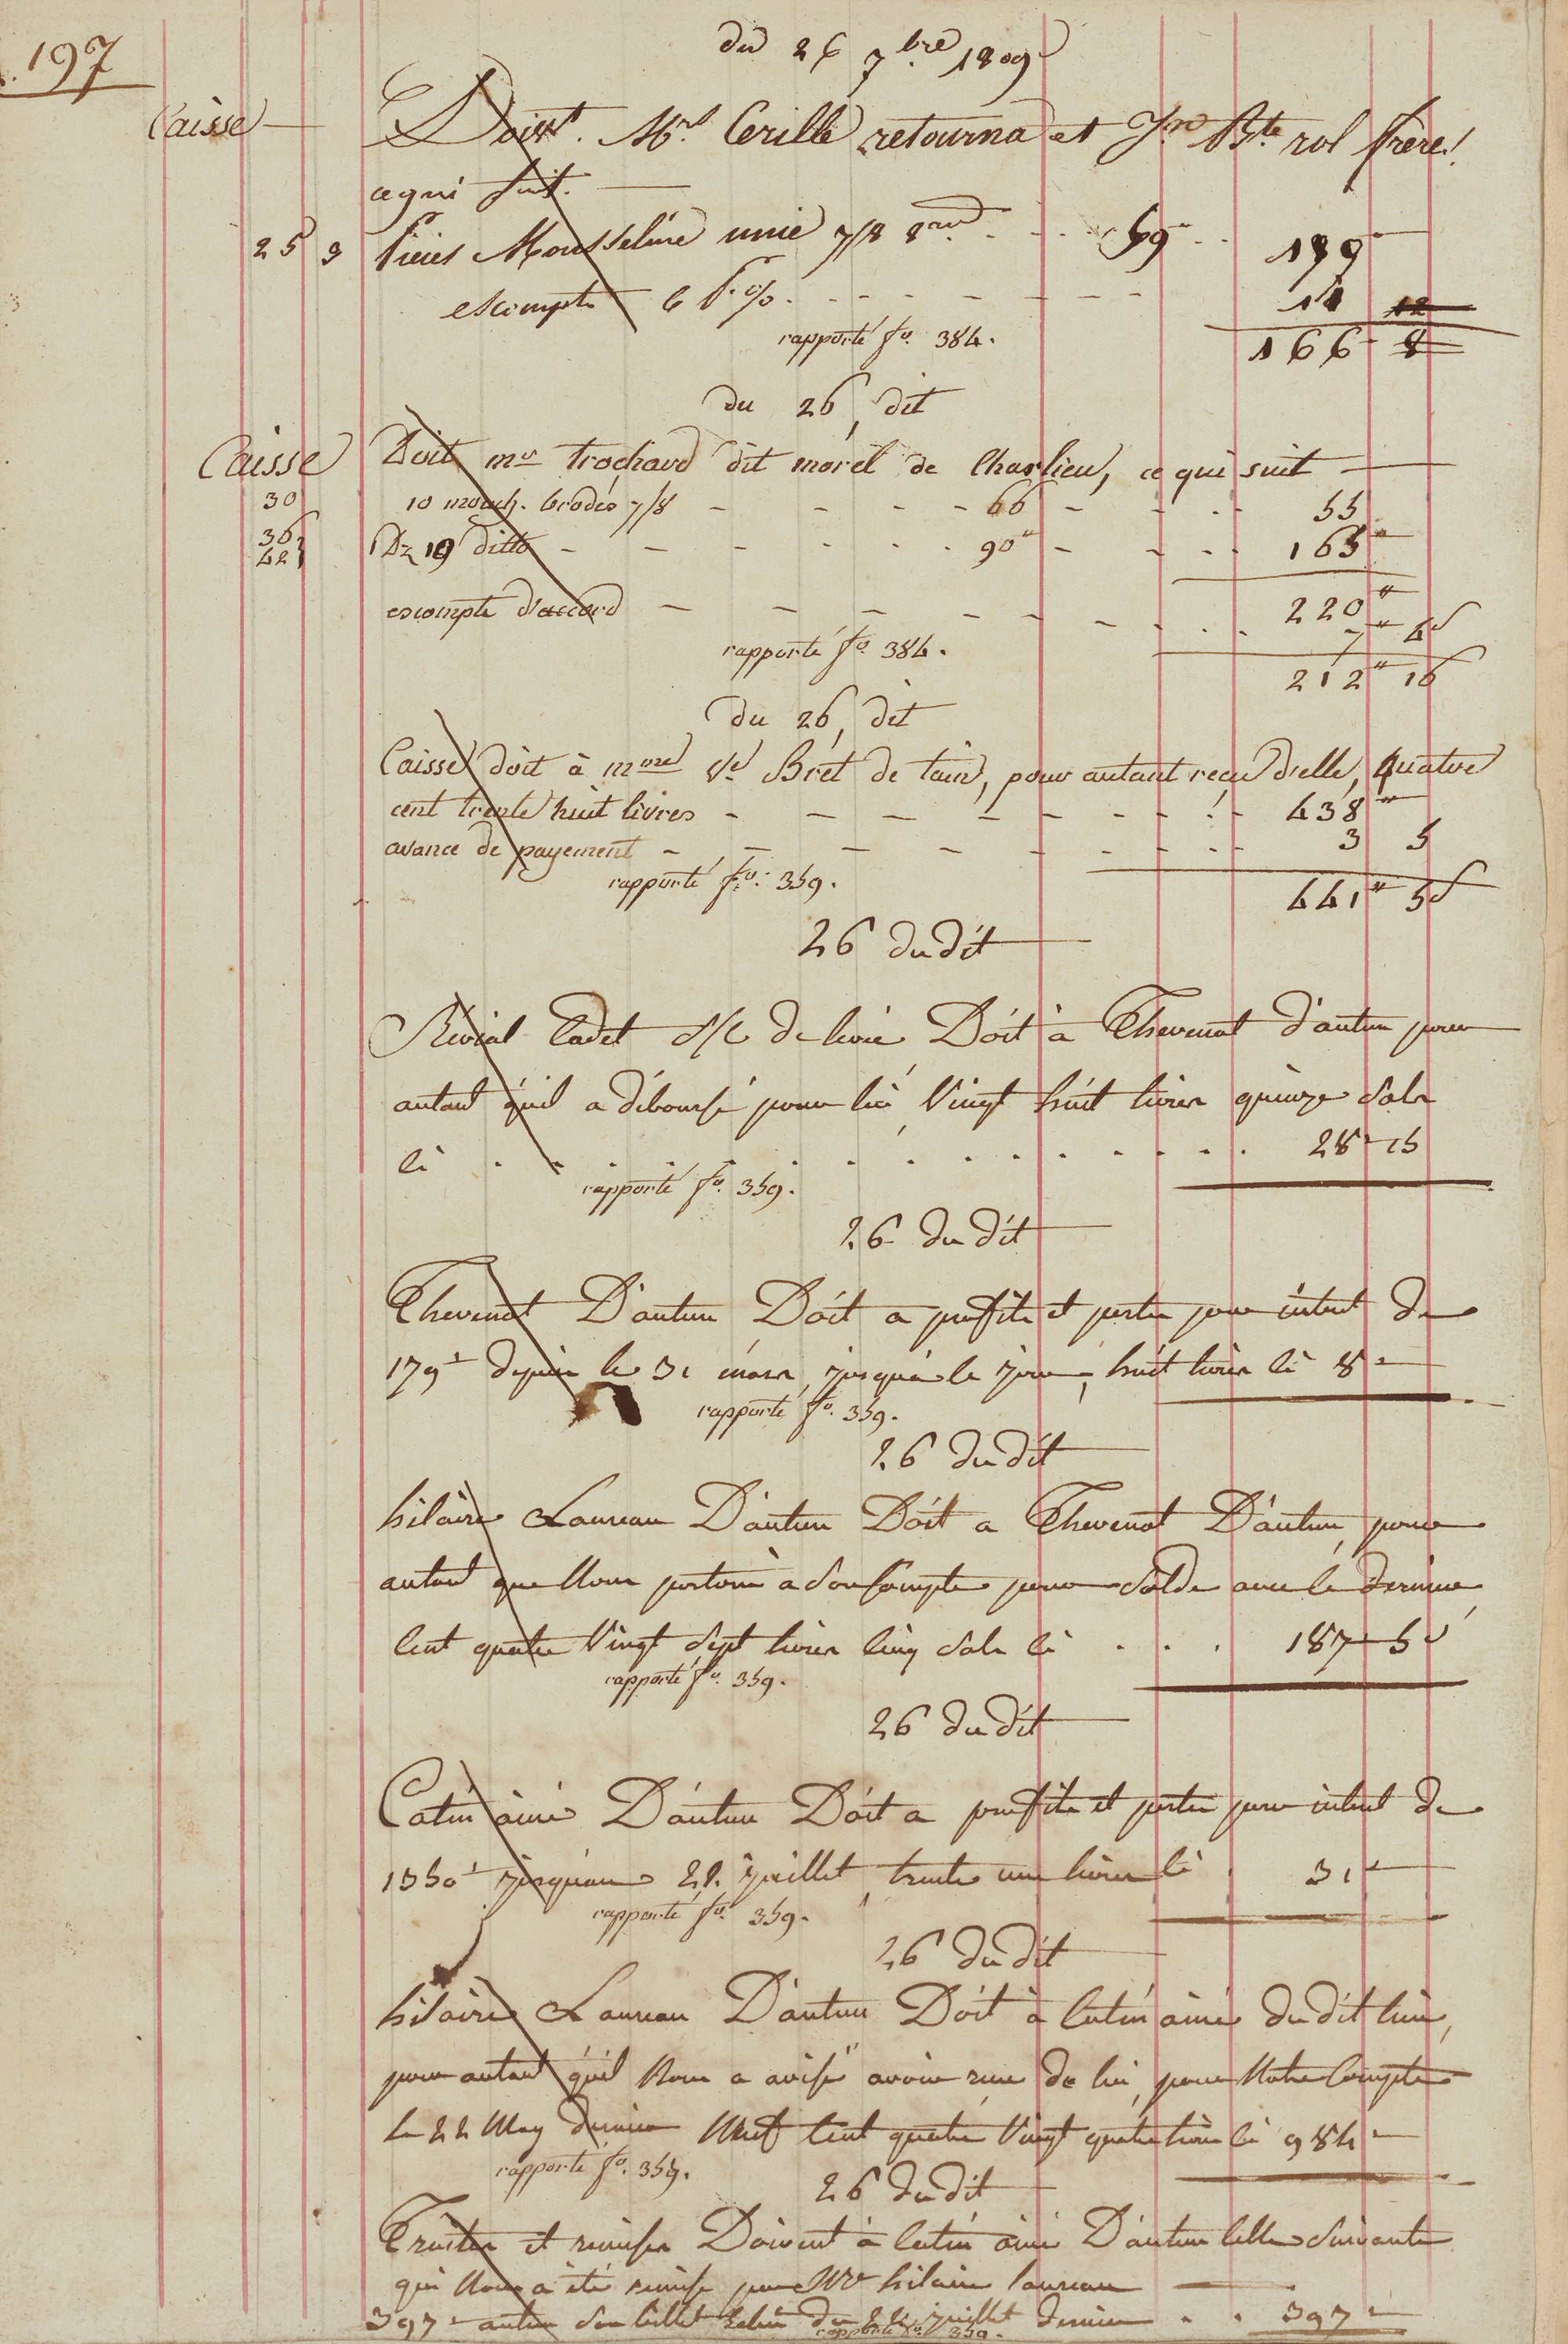 197
du 26 7bre 1809
Caisse Doivt. Mrs Cerille retourna et Jn Bte rol frere!
ce qui suit.
25 3 pieces Mousseline unie 7/8 59 177
escompte 6 p. %
rapporté fo. 384.
166 8
du 26, dit
Caisse Doit mr trochard dit morel de Charlieu, ce qui suit
30 10 mouch. brodés 7/8 66 55
36 Dz 10 ditto 90" 165"
42
220"
escompte d'accord 7" 4s
rapporté fo. 384.
212" 16
du 26, dit
Caisse doit à mme ve Bret de tain, pour autant reçu d'elle, quatre
cent trente huit livres 438"
avance de payement 3 5
rapporté fo. 359.
441" 5s
26 du dit
Révial Cadet s/c de livré Doit à Thevenot d'autun pour
autant qu'il a déboursé pour lui, Vingt huit livres quinze sols
Ci 28" 15
rapporté fo. 359.
26 du dit
Thevenot D'autun Doit a proffits et pertes pour intret de
179" depuis le 31 mars, jusqu'a le jour, huit livres Ci 8"
rapporté fo. 359.
26 du dit
hilaire Laureau D'autun Doit a Thevenot D'autun, pour
autant que Nous portons a son Compte pour solde avec le dernier,
Cent quatre Vingt sept livres Cinq sols Ci 187" 5s
rapporté fo. 359.
26 du dit
Catin ainé D'autun Doit a proffits et pertes pour intret de
1350" jusqu'au 22 juillet, trente une livres Ci 31"
rapporté fo. 359.
26 du dit
hilaire Laureau D'autun Doit à Catin ainé du dit lieu,
pour autant qu'il Nous a avisé avoir reçu de lui, pour Notre Compte
le 22 May dernier Neuf Cent quatre Vingt quatre livres Ci 984"
rapporté fo. 359.
26 du dit
Traites et remises Doivent à Catin ainé D'autun Celle suivante
qui Nous a été remise par Mr hilaire laureau
397" autun son billet du 22 juillet dernier 397"
rapporté fo. 359.